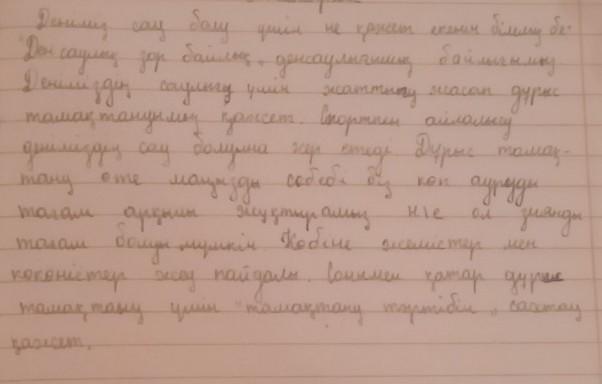 Деніміз сау болу үшін не қажет екенін білеміз бе?
"Денсаулық зор байлық, денсаулығымыз байлығымыз
Деніміздің саулығы үшін жаттығу жасап дұрыс
тамақтануымыз қажет. Спортпен айналысу
деніміздің сау болуына әсер етеді Дұрыс тамақ-
тану өте маңызды себебі біз көп ауруды
тағам арқылы жұқтырамыз не ол зиянды
тағам болуы мүмкін Көбіне жемістер мен
көкөністер жеу пайдалы. Сонымен қатар дұрыс
тамақтану үшін "тамақтану тәртібін" сақтау
қажет.